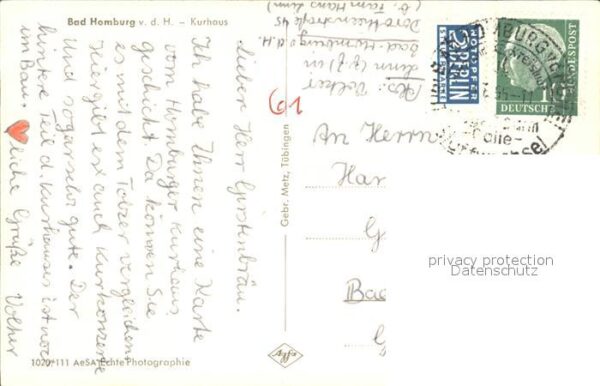 Bad Homburg v. d. H. – Kurhaus
Lieber Herr Gerstenbräu.
Ich habe Ihnen eine Karte
vom Homburger Kurhaus
geschickt. Da können Sie
es mit dem Tölzer vergleichen.
Hier gibt es auch Kurkonzerte
Und sogar sehr gute. Der
hintere Teil d. Kurhauses ist noch
im Bau. ❤liche Grüße Volker
Abs. Volker
(z. Zt.) in
Bad-Homburg v. d. H.
Dorotheenstraße 45
(b. Fam Hans
61
An Herrn
Har
G
Bad
G
Gebr. Metz, Tübingen
Agfa
1020/111 AeSA Echte Photographie
NOTOPFER
2 BERLIN
STEUERMARKE
DEUTSCHE BUNDESPOST
10
privacy protection
Datenschutz